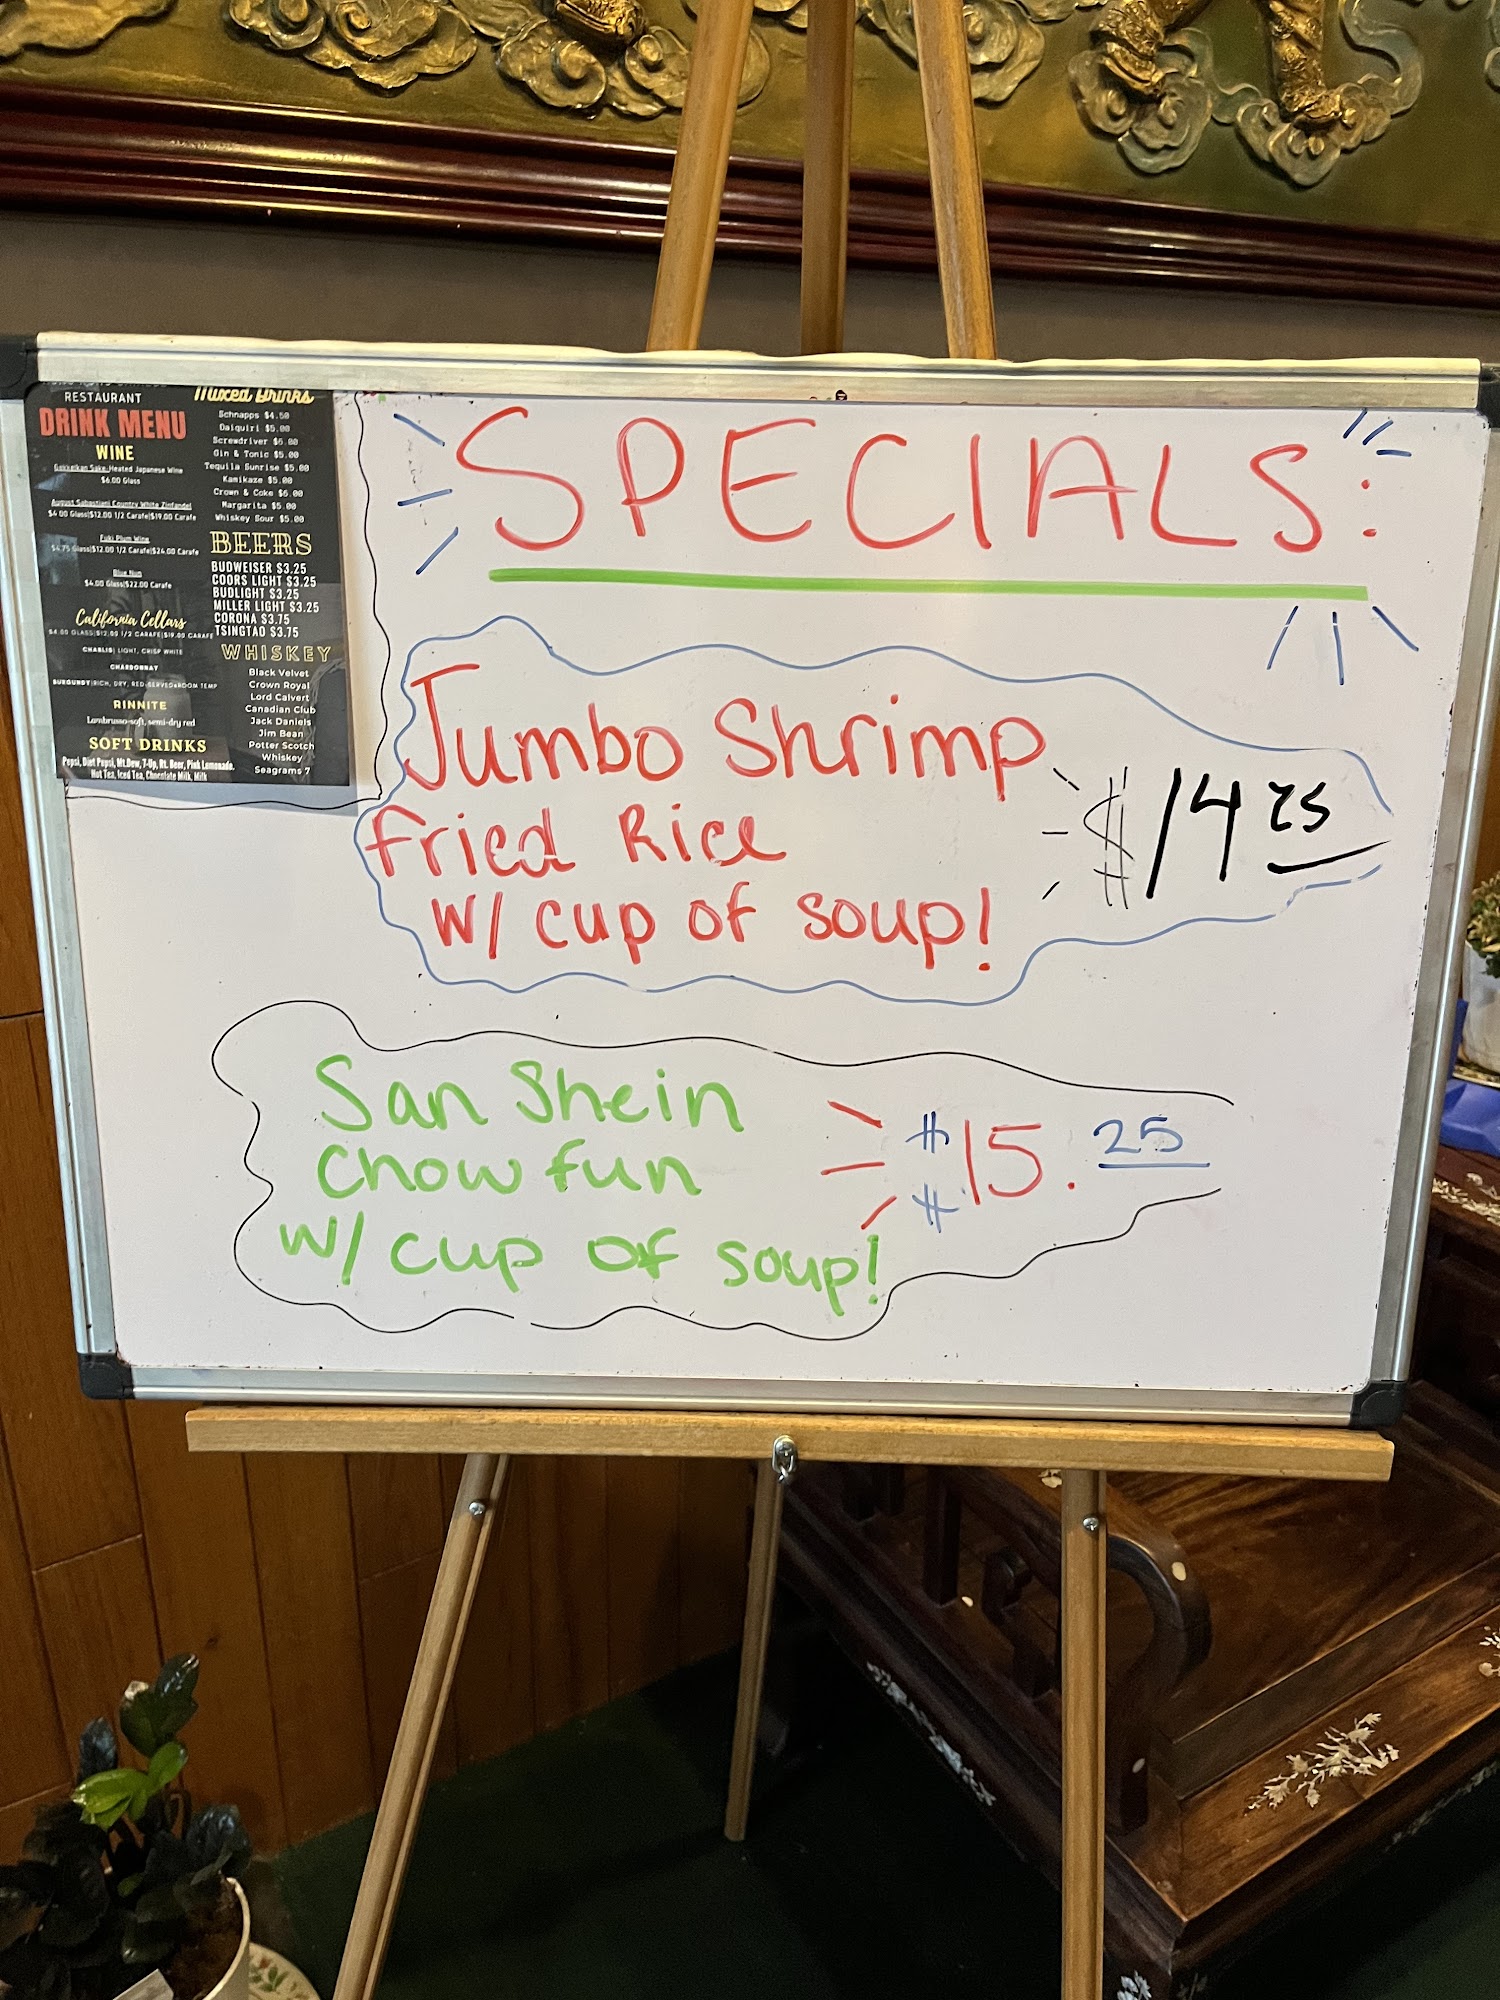 RESTAURANT
DRINK MENU
WINE
Gekkeikan Sake-Heated Japanese Wine
$6.00 Glass
August Sebastiani Country White Zinfandel
$4.00 Glass|$12.00 1/2 Carafe|$19.00 Carafe
Fuki Plum Wine
$4.75 Glass|$12.00 1/2 Carafe|$24.00 Carafe
Blue Nun
$4.00 Glass|$22.00 Carafe
California Cellars
$4.00 GLASS|$12.00 1/2 CARAFE|$19.00 CARAFE
CHABLIS| LIGHT, CRISP WHITE
CHARDONNAY
BURGUNDY|RICH, DRY, RED-SERVED@ROOM TEMP
RINNITE
Lambrusco-soft, semi-dry red
SOFT DRINKS
Pepsi, Diet Pepsi, Mt.Dew, 7-Up, Rt. Beer, Pink Lemonade.
Hot Tea, Iced Tea, Chocolate Milk, Milk
Mixed Drinks
Schnapps $4.50
Daiquiri $5.00
Screwdriver $6.00
Gin & Tonic $5.00
Tequila Sunrise $5.00
Kamikaze $5.00
Crown & Coke $6.00
Margarita $5.00
Whiskey Sour $5.00
BEERS
BUDWEISER $3.25
COORS LIGHT $3.25
BUDLIGHT $3.25
MILLER LIGHT $3.25
CORONA $3.75
TSINGTAO $3.75
WHISKEY
Black Velvet
Crown Royal
Lord Calvert
Canadian Club
Jack Daniels
Jim Bean
Potter Scotch
Whiskey
Seagrams 7
SPECIALS:
Jumbo Shrimp
Fried Rice
w/ cup of soup!
$14 25
San Shein
Chow fun
w/ cup of soup!
$15. 25